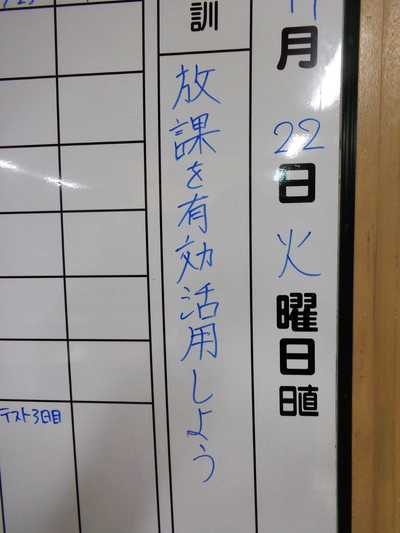 月 22日 火曜日 日直
訓
放課を有効活用しよう
テスト3日目